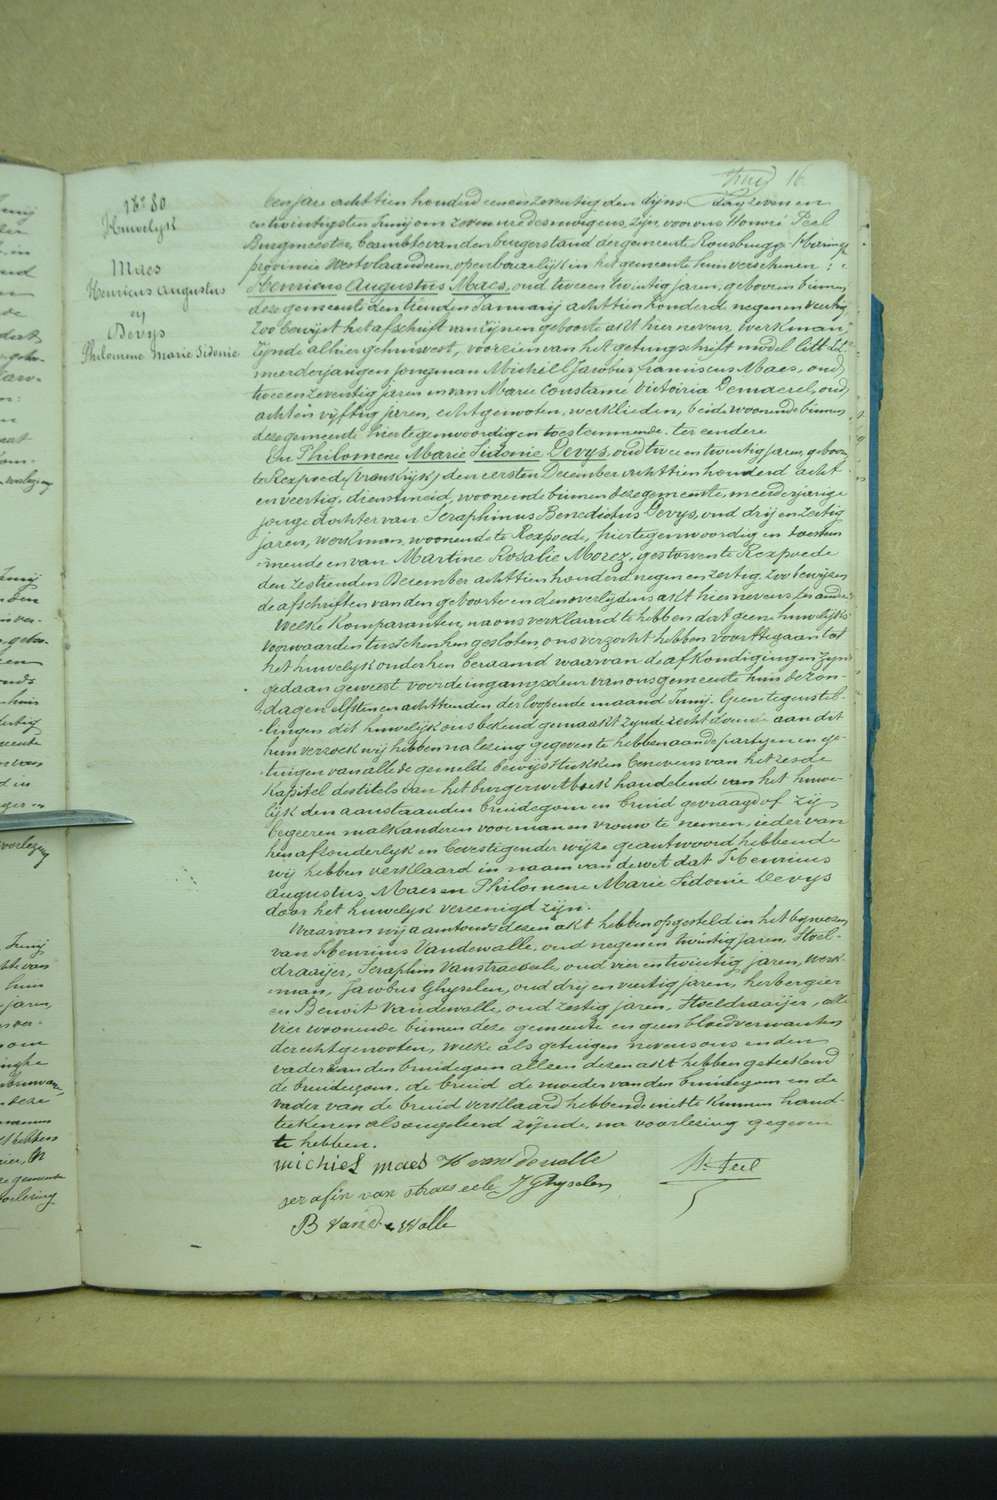 Junij 16
N° 30
Huwelijk
Maes
Henricus Augustus
en
Devys
Philomene Marie Sidonie
Ten jare achttien honderd eenenzeventig den dijns- dag zeven en
entwintigsten Junij om zeven ure des morgens, zijn voor ons Honoré Peel
Burgmeester, beambte van den burgerstand der gemeente Rousbrugge Haringe
provincie Westvlaanderen, openbaarlijk in het gemeente huis verschenen :
Henricus Augustus Maes, oud twee en twintig jaren, geboren binnen
deze gemeente den tienden Januarij achttien honderd negen en veertig
zoo bewijst het afschrift van zijnen geboorte akt hier nevens, werkman
zijnde alhier gehuisvest, voorzien van het getuigschrift model litt
meerderjarigen jongman Michiel Jacobus Franciscus Maes, oud
twee en zeventig jaren en van Marie Constance Victoria Demaerel, oud
acht en vijftig jaren, echtgenoten, werklieden, beide woonende binnen
deze gemeente hier tegenwoordig en toestemmende. ter eendere
En Philomene Marie Sidonie Devys, oud twee en twintig jaren, geboren
te Rexpoede (Vrankrijk) den eersten December achttien honderd acht
en veertig, dienstmeid, woonende binnen deze gemeente, meerderjarige
jonge dochter van Seraphinus Benedictus Devys, oud drij en zestig
jaren, werkman, woonende te Rexpoede, hier tegenwoordig en toestem
mende en van Martine Rosalie Morez, gestorven te Rexpoede
den zestienden December achttien honderd negen en zestig, zoo bewijzen
de afschriften van den geboorte en den overlijdens akt hier nevens, ter andere
Welke komparanten, na ons verklaard te hebben dat geene huwelijks
voorwaarden tusschen hen gesloten, ons verzocht hebben voort te gaan tot
het huwelijk onder hen beraamd waarvan de afkondigingen zijn
gedaan geweest voor de ingangsdeur van ons gemeente huis de zon-
dagen elfsten en achttienden der loopende maand Junij. Geen tegenstel-
lingen dit huwelijk ons bekend gemaakt zijnde recht doende aan dit
hun verzoek wij hebben na lezing gegeven te hebben aan de partijen en ge-
tuigen van alle de gemelde bewijs stukken benevens van het zesde
kapittel des titels van het burgerwetboek handelend van het huwe-
lijk den aanstaanden bruidegom en bruid gevraagd of zij
begeeren malkanderen voor man en vrouw te nemen, ieder van
hen afzonderlijk en bevestigender wijze geantwoord hebbende
wij hebben verklaard in naam van de wet dat Henricus
Augustus Maes en Philomene Marie Sidonie Devys
door het huwelijk vereenigd zijn.
Waarvan wij aantonds dezen akt hebben opgesteld in het bijwezen
van Henricus Vandewalle, oud negen en twintig jaren, Stoel-
draaijer, Seraphin Vanstraeseele, oud vier en twintig jaren, werk-
man, Jacobus Ghyselen, oud drij en veertig jaren, herbergier
en Benoit Vandewalle, oud zestig jaren, Stoeldraaijer, alle
vier woonende binnen deze gemeente en geen bloedverwanten
der echtgenooten, welke als getuigen nevens ons en den
vader van den bruidegom alleen dezen akt hebben geteekend
de bruidegom, de bruid de moeder van den bruidegom en de
vader van de bruid verklaard hebbende niet te kunnen hand-
teekenen als ongeleerd zijnde, na voorlezing gegeven
te hebben.
michiel maes H van de walle H. Peel
serafin van straeseele J Ghyselen
B Van de Walle